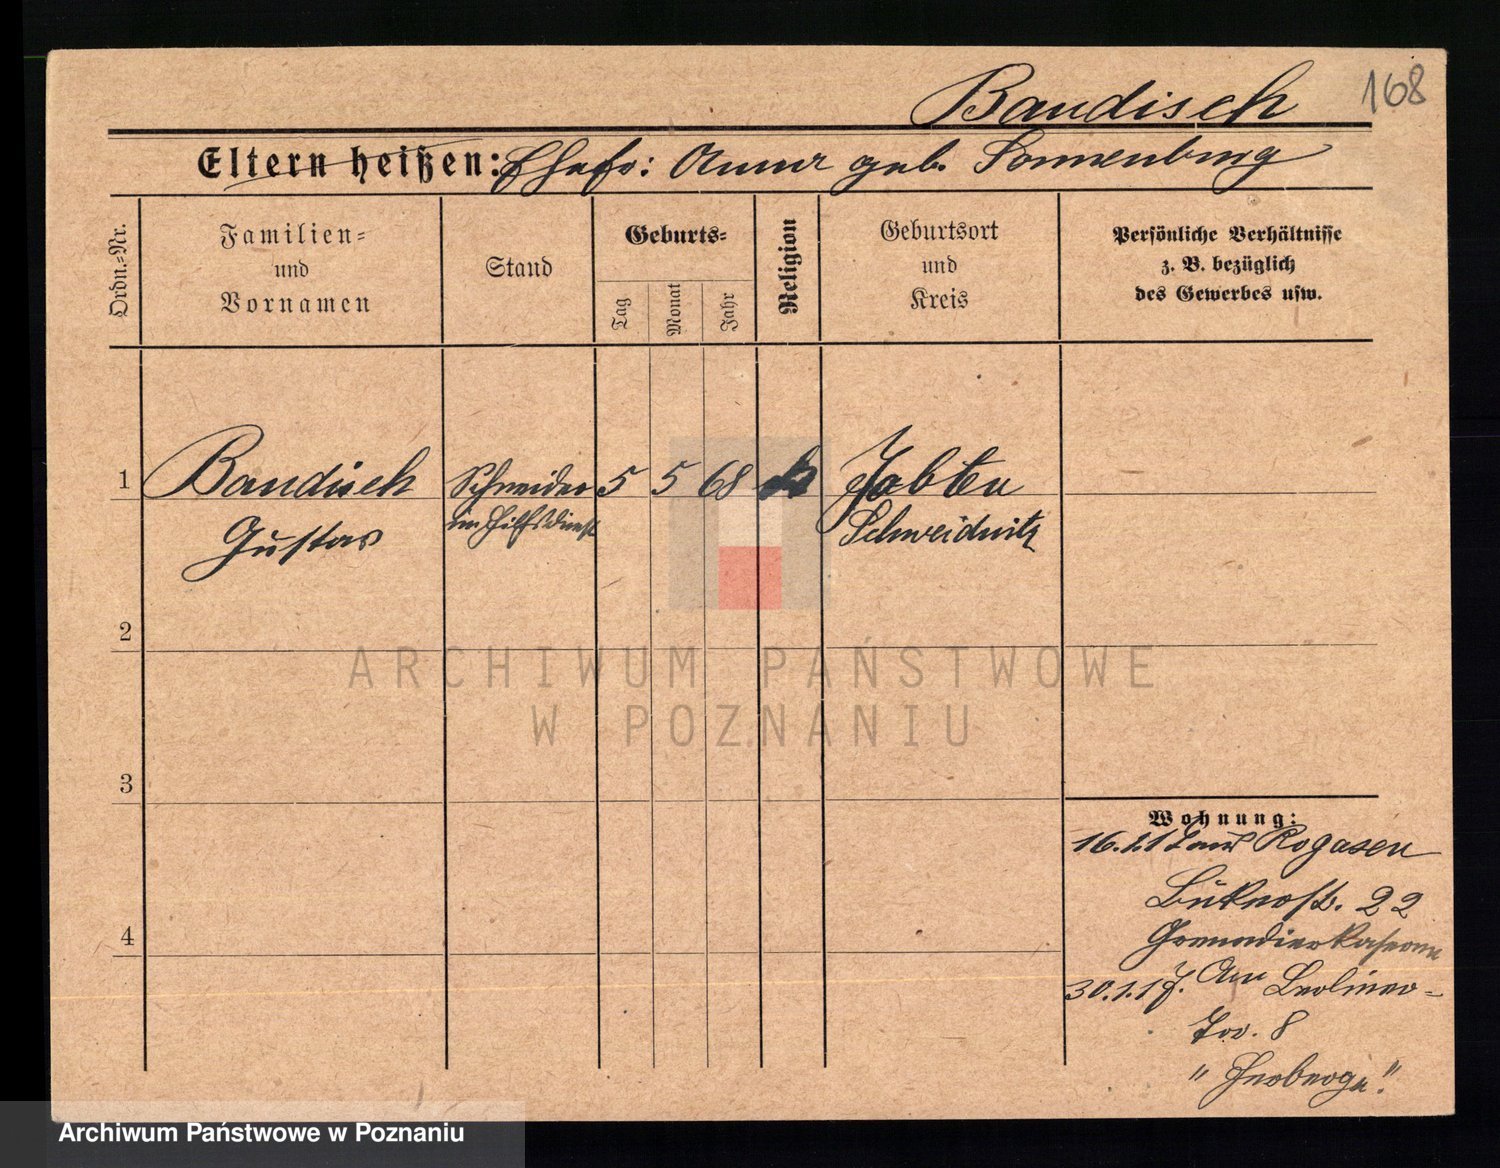 Baudisch
168
Eltern heißen: Ehefr: Anna geb. Sonnenburg
Ordn.-Nr.
Familien-
und
Vornamen
Stand
Geburts-
Tag
Monat
Jahr
Religion
Geburtsort
und
Kreis
Persönliche Verhältnisse
z. B. bezüglich
des Gewerbes usw.
1
Baudisch
Gustav
Schneider
im Hilfsdienst
5
5
68
k
Zobten
Schweidnitz
2
3
4
Wohnung:
16. Rogasen
22
Grenadier Kaserne
30.1.17. Am Berliner-
Tor. 8
"Herberge."
ARCHIWUM PAŃSTWOWE
W POZNANIU
Archiwum Państwowe w Poznaniu